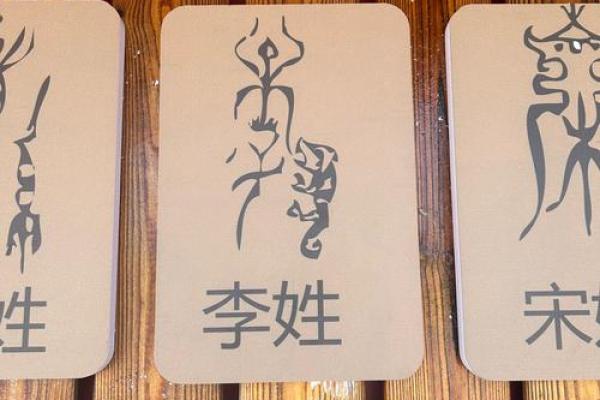 姓
李姓
宋姓